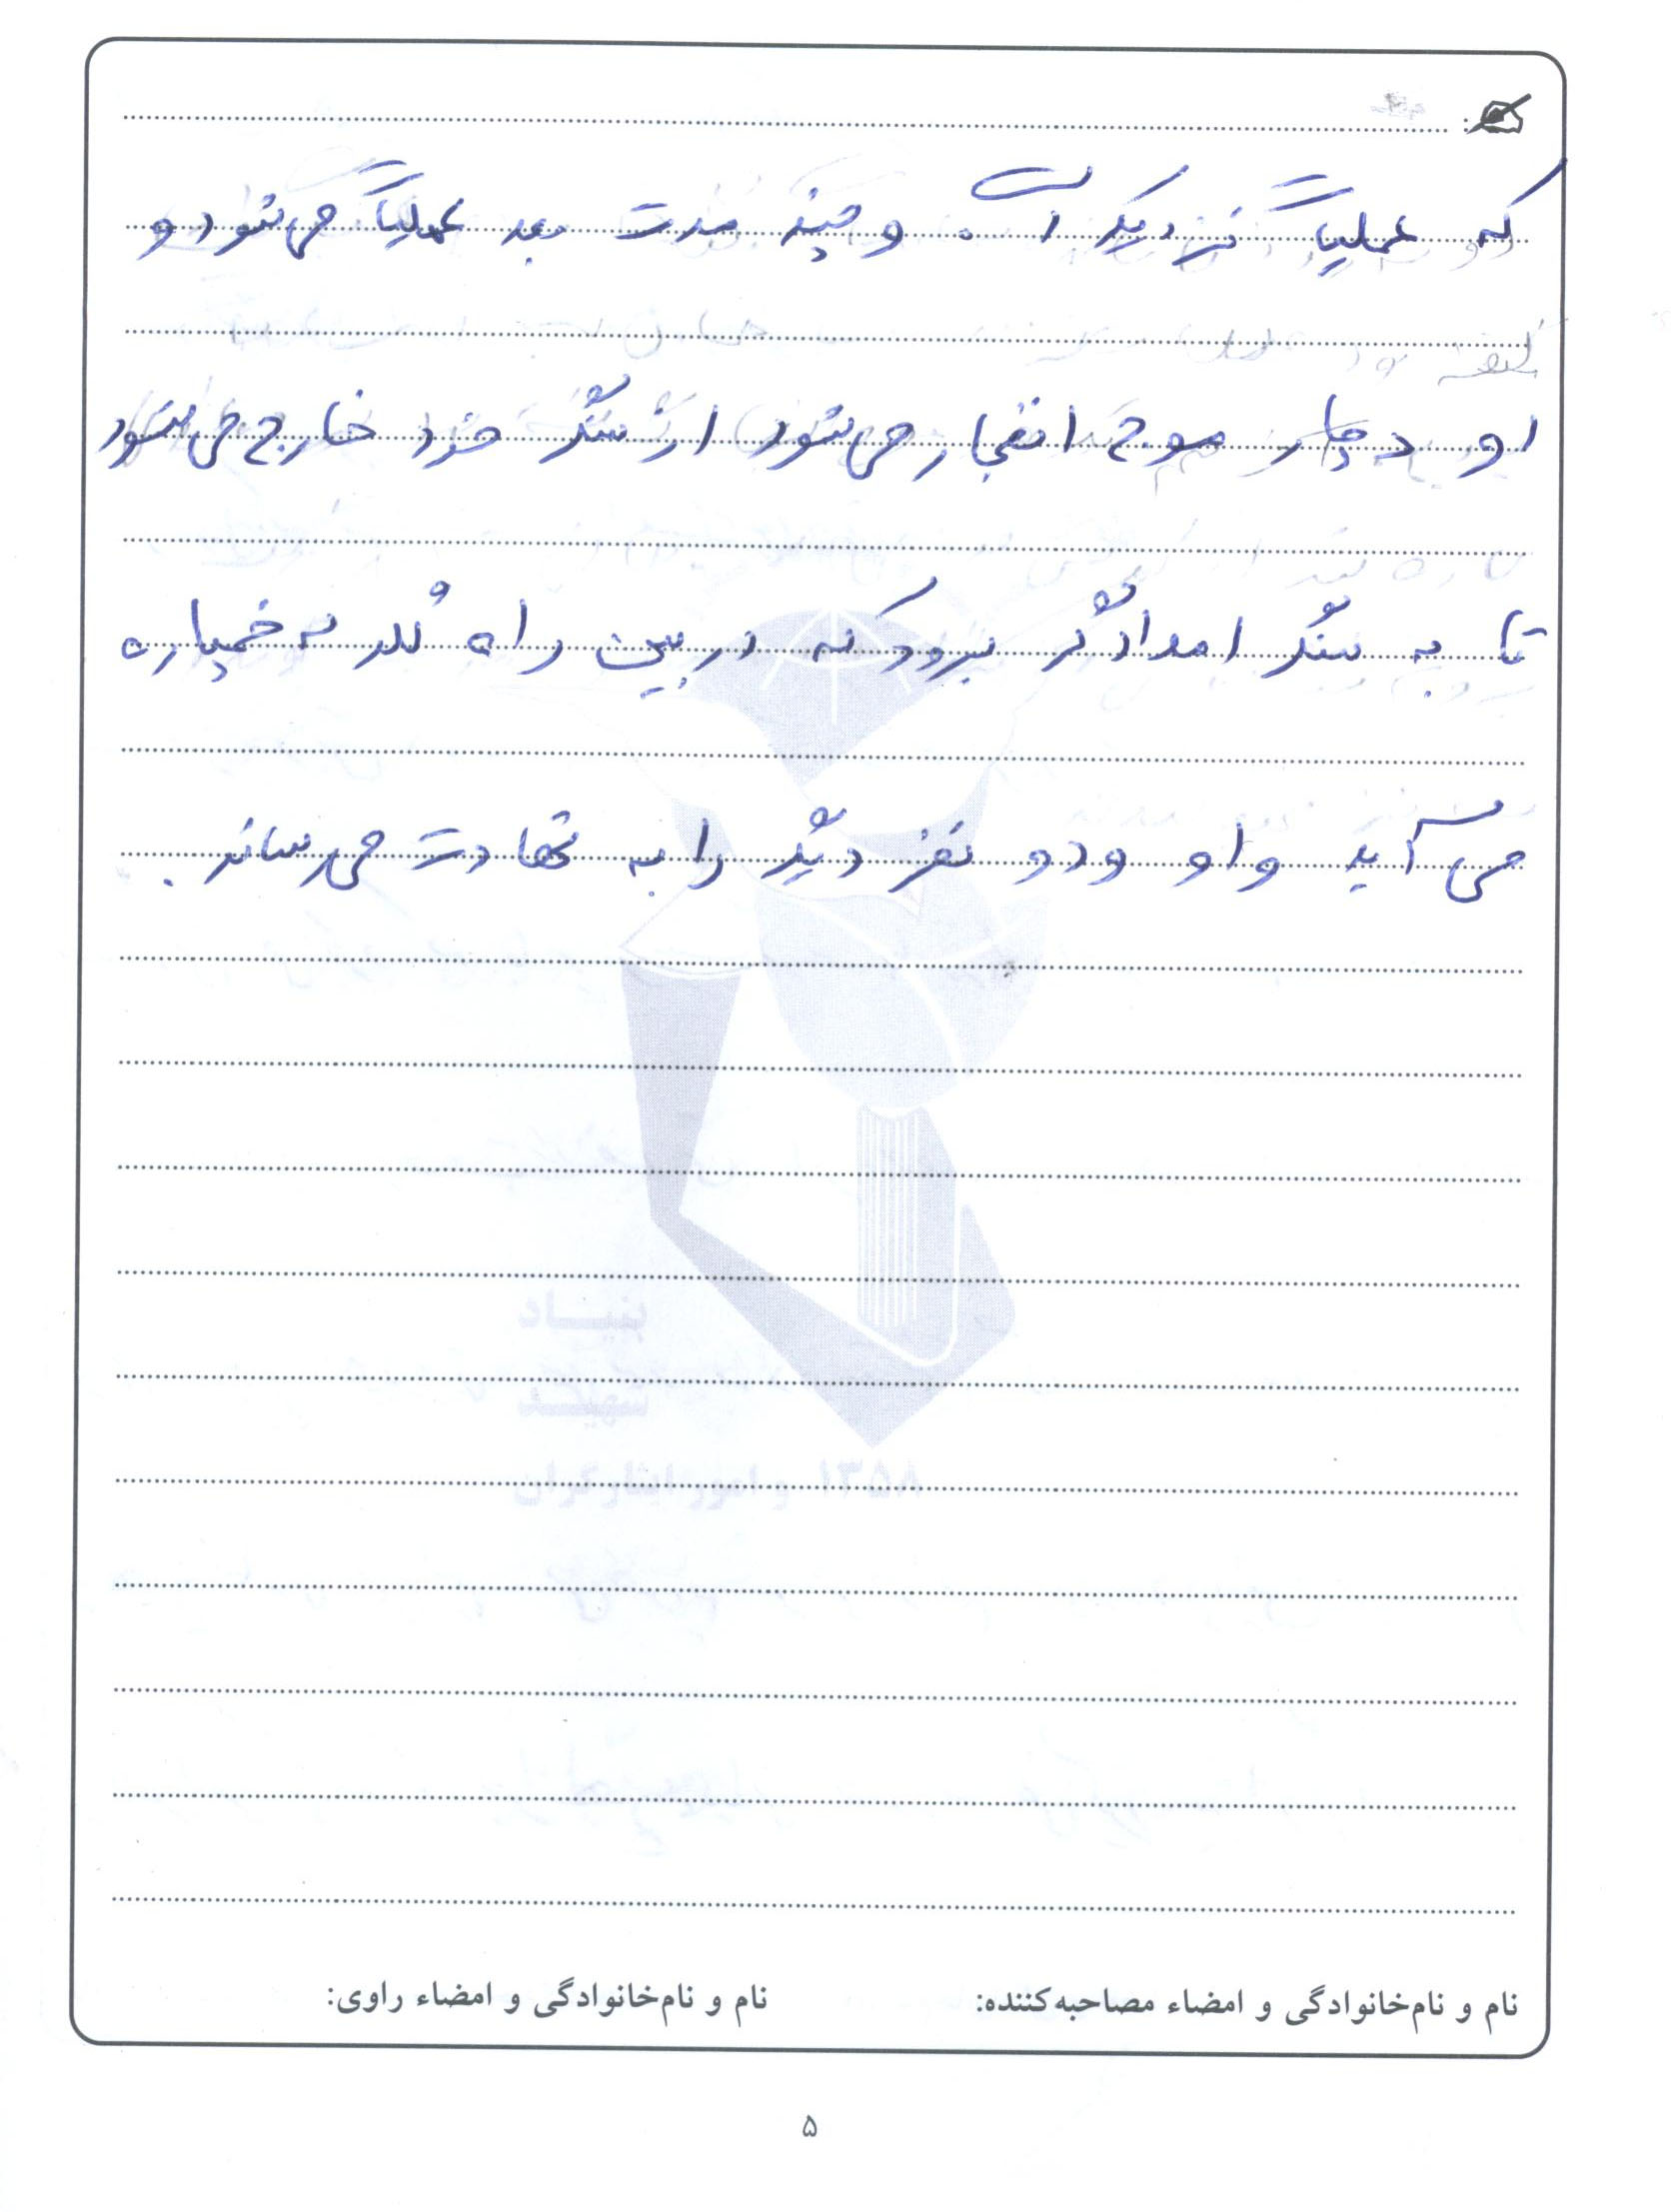 که عملیات نزدیک است. و چند مدت بعد عملیات می‌شود و
او دچار موج انفجار می‌شود از سنگر خود خارج می‌شود
تا به سنگر امدادگر برود که در بین راه گلوله خمپاره
می‌آید و او و دو نفر دیگر را به شهادت می‌رساند.
بنیاد
شهید
و امور ایثارگران ۱۳۵۸
نام و نام‌خانوادگی و امضاء مصاحبه‌کننده: نام و نام‌خانوادگی و امضاء راوی:
۵